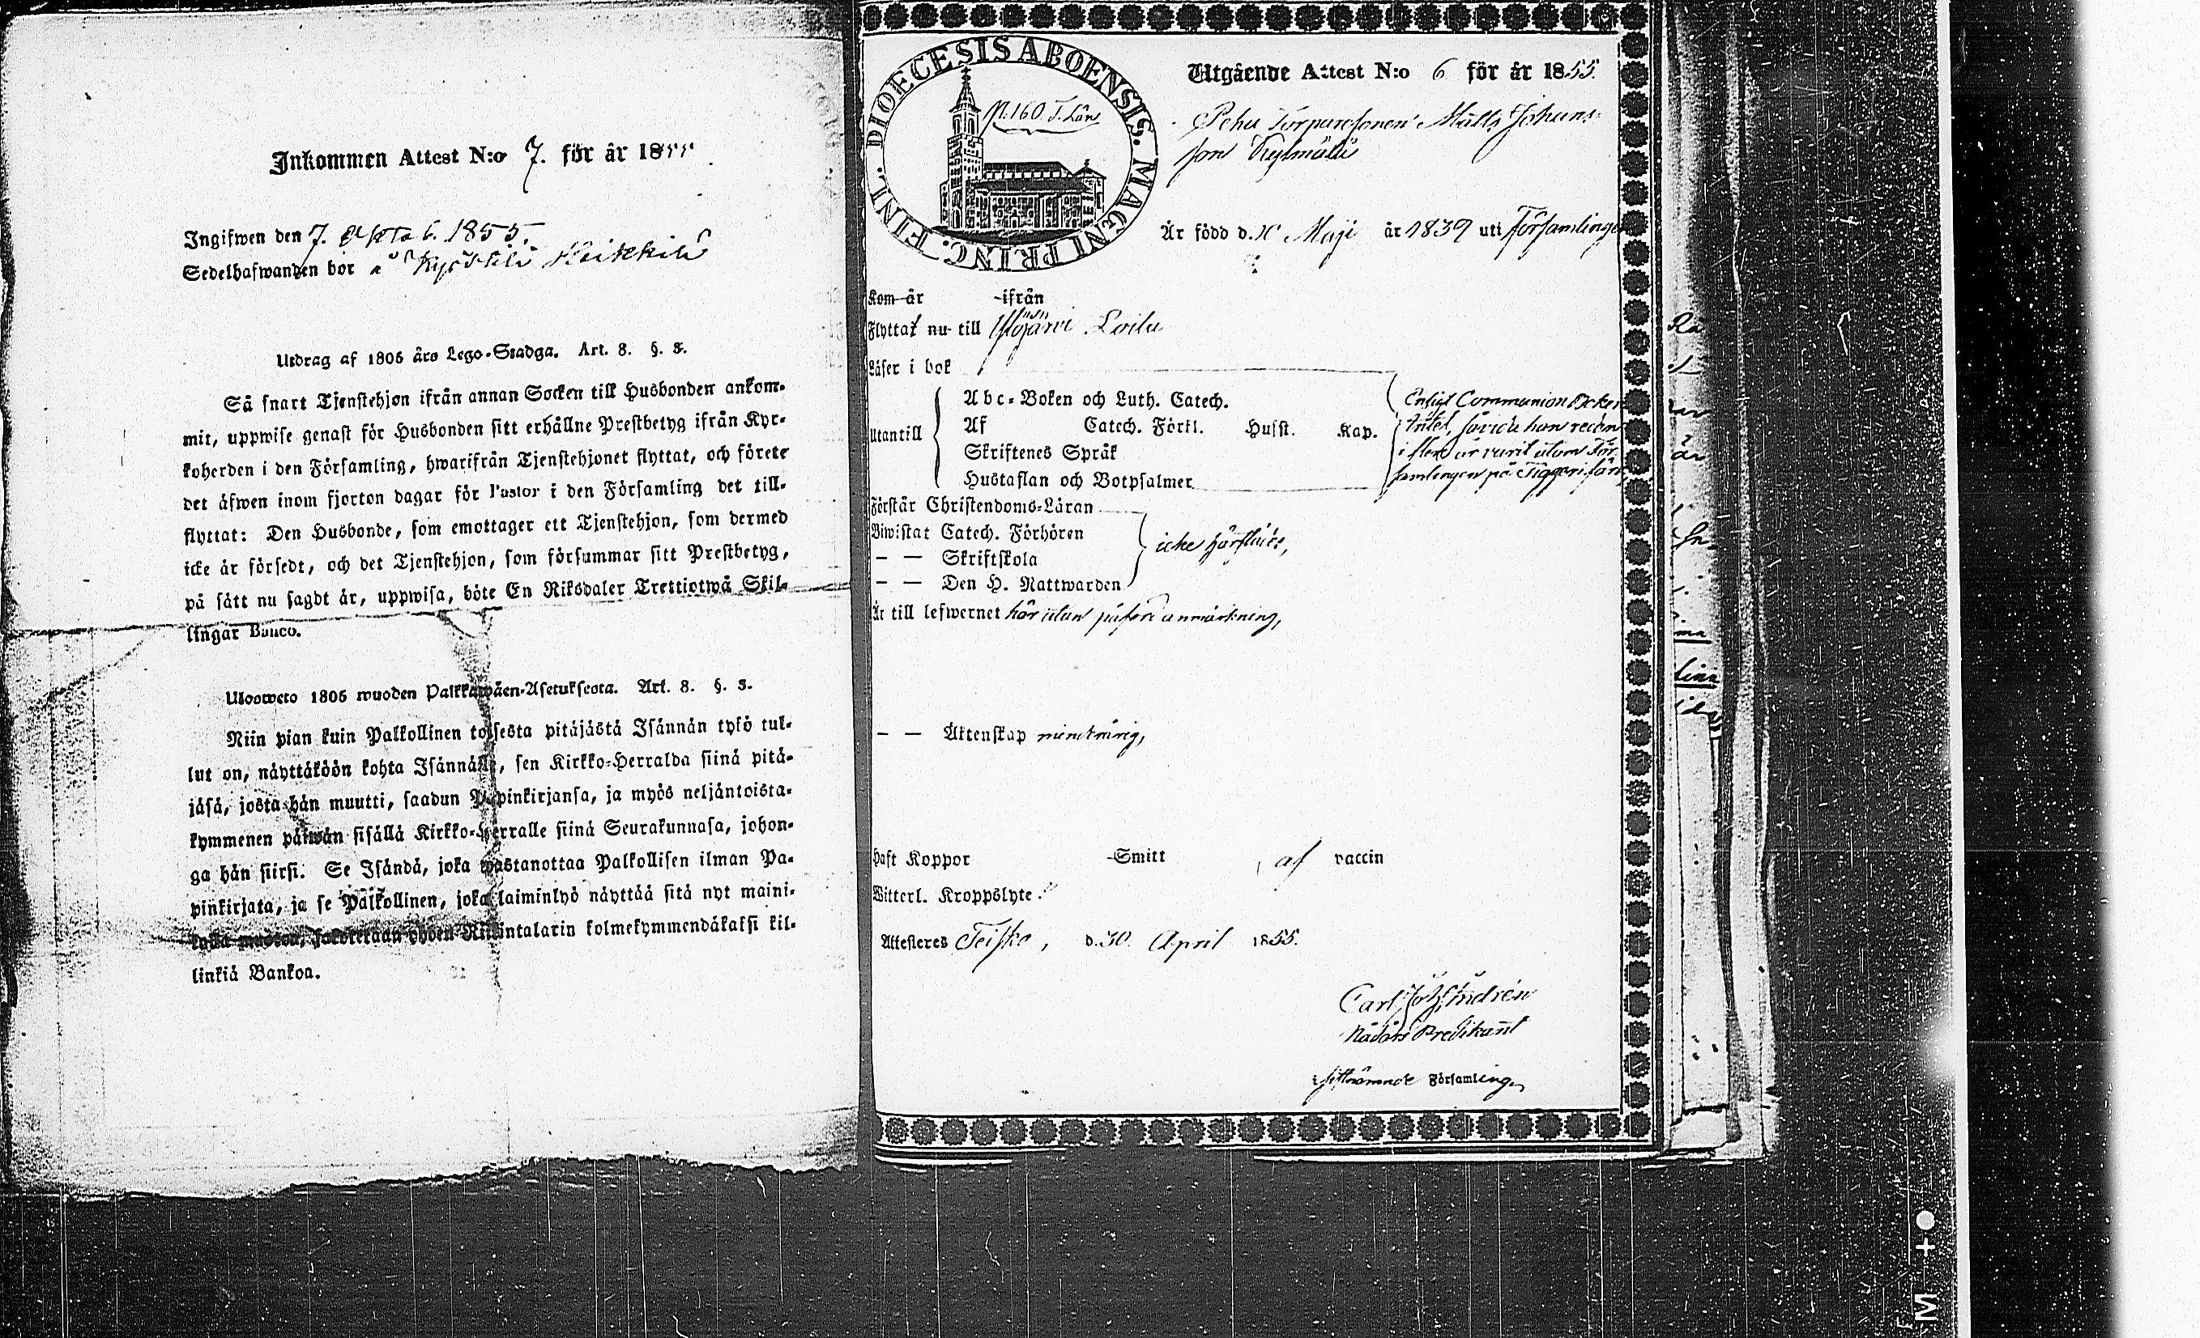 Inkommen Attest N:o 7. för år 1855
Ingifwen den 7. 1855.
Sedelhafwanden bor å Kyöstilä Heikkilä
Utdrag af 1805 års Lego-Stadga. Art. 8. §. 3.
Så snart Tjenstehjon ifrån annan Socken till Husbonden ankom-
mit, uppwise genast för Husbonden sitt erhållne Prestbetyg ifrån Kyr-
koherden i den Församling, hwarifrån Tjenstehjonet flyttat, och förete
det äfwen inom fjorton dagar för Pastor i den Församling det till-
flyttat: Den Husbonde, som emottager ett Tjenstehjon, som dermed
icke är försedt, och det Tjenstehjon, som försummar sitt Prestbetyg,
på sätt nu sagdt är, uppwisa, böte En Riksdaler Trettiotwå Skil-
lingar Banco.
Ulosweto 1805 wuoden Palkkawäen-Asetuksesta. Art. 8. §. 3.
Niin pian kuin Palkollinen toisesta pitäjästä Isännän tykö tul-
lut on, näyttäköön kohta Isännälle, sen Kirkko-Herralda siinä pitä-
jäsä, josta hän muutti, saadun Papinkirjansa, ja myös neljäntoista-
kymmenen päiwän sisällä Kirkko-Herralle siinä Seurakunnasa, johon-
ga hän siirsi. Se Isändä, joka wastanottaa Palkollisen ilman Pa-
pinkirjata, ja se Palkollinen, joka laiminlyö näyttää sitä nyt maini-
tulla muodon, sakoitetaan yhden Riksintalarin kolmekymmendäkaksi kil-
linkiä Bankoa.
DIOECESIS ABOENSIS. MAGNI PRINC. FINL.
N. 160 T. Län
Utgående Attest N:o 6 för år 1855.
Torparesonen Matts Johans-
son
Är född d. Maji år 1839 uti Församlingen
Kom år -ifrån
Flyttat nu till Ylöjärvi Loilu
Läser i bok
Utantill
Abc-Boken och Luth. Catech.
Af Catech. Förkl. Husst. Kap.
Skriftenes Språk
Hustaflan och Botpsalmer
Enligt Communion Boken
intet, såvida han redan
i flera år varit utom För-
samlingen på Tiggeri färd
Förstår Christendoms-Läran
Biwistat Catech. Förhören
— — Skriftskola
— — Den H. Nattwarden
icke härstädes,
Är till lefwernet här utan påförd anmärkning,
— — Äktenskap minderårig,
Haft Koppor -Smitt af vaccin
Witterl. Kroppslyte
Attesteres Teisko, d. 30 April 1855.
Carl Joh. Indrén
Nådårs Predikant
i sistnämnde Församling.